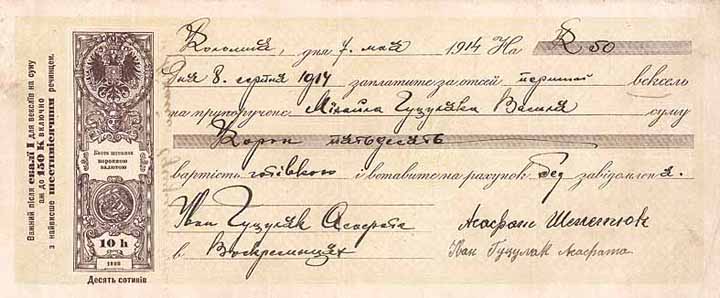 Важний після скалї I для векслїв на суму
аж до 150 K включно
з найвисше шестимісячним реченцем.
Квота штемпля
коронною
валютою
10 h
1898
Десять сотиків
Коломия, дня 7 мая 1914 На K 50
Дня 8. серпня 1914 заплатите за отсей перший вексель
на припоручене Міхайла Гуцуляка Василя суму
Корон пятьдесять
вартість готівкою і вставите на рахунок без завідомлення.
Іван Гуцуляк Асафата
в Воскресінцях
Асафат Шепетюк
Іван Гуцулак Асафата